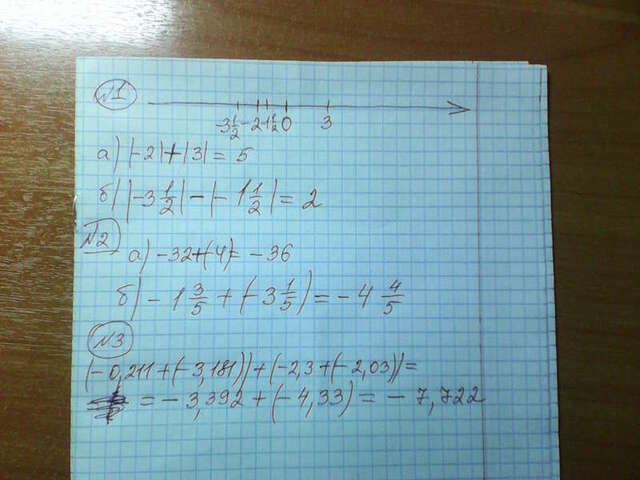 №1
-3 1/2 -2 -1 1/2 0 3
а) |-2|+|3|= 5
б) |-3 1/2|-|-1 1/2|= 2
№2
а) -32+(-4)= -36
б) -1 3/5 + (-3 1/5)= -4 4/5
№3
(-0,211+(-3,181))+(-2,3+(-2,03))=
= -3,392+(-4,33)= -7,722